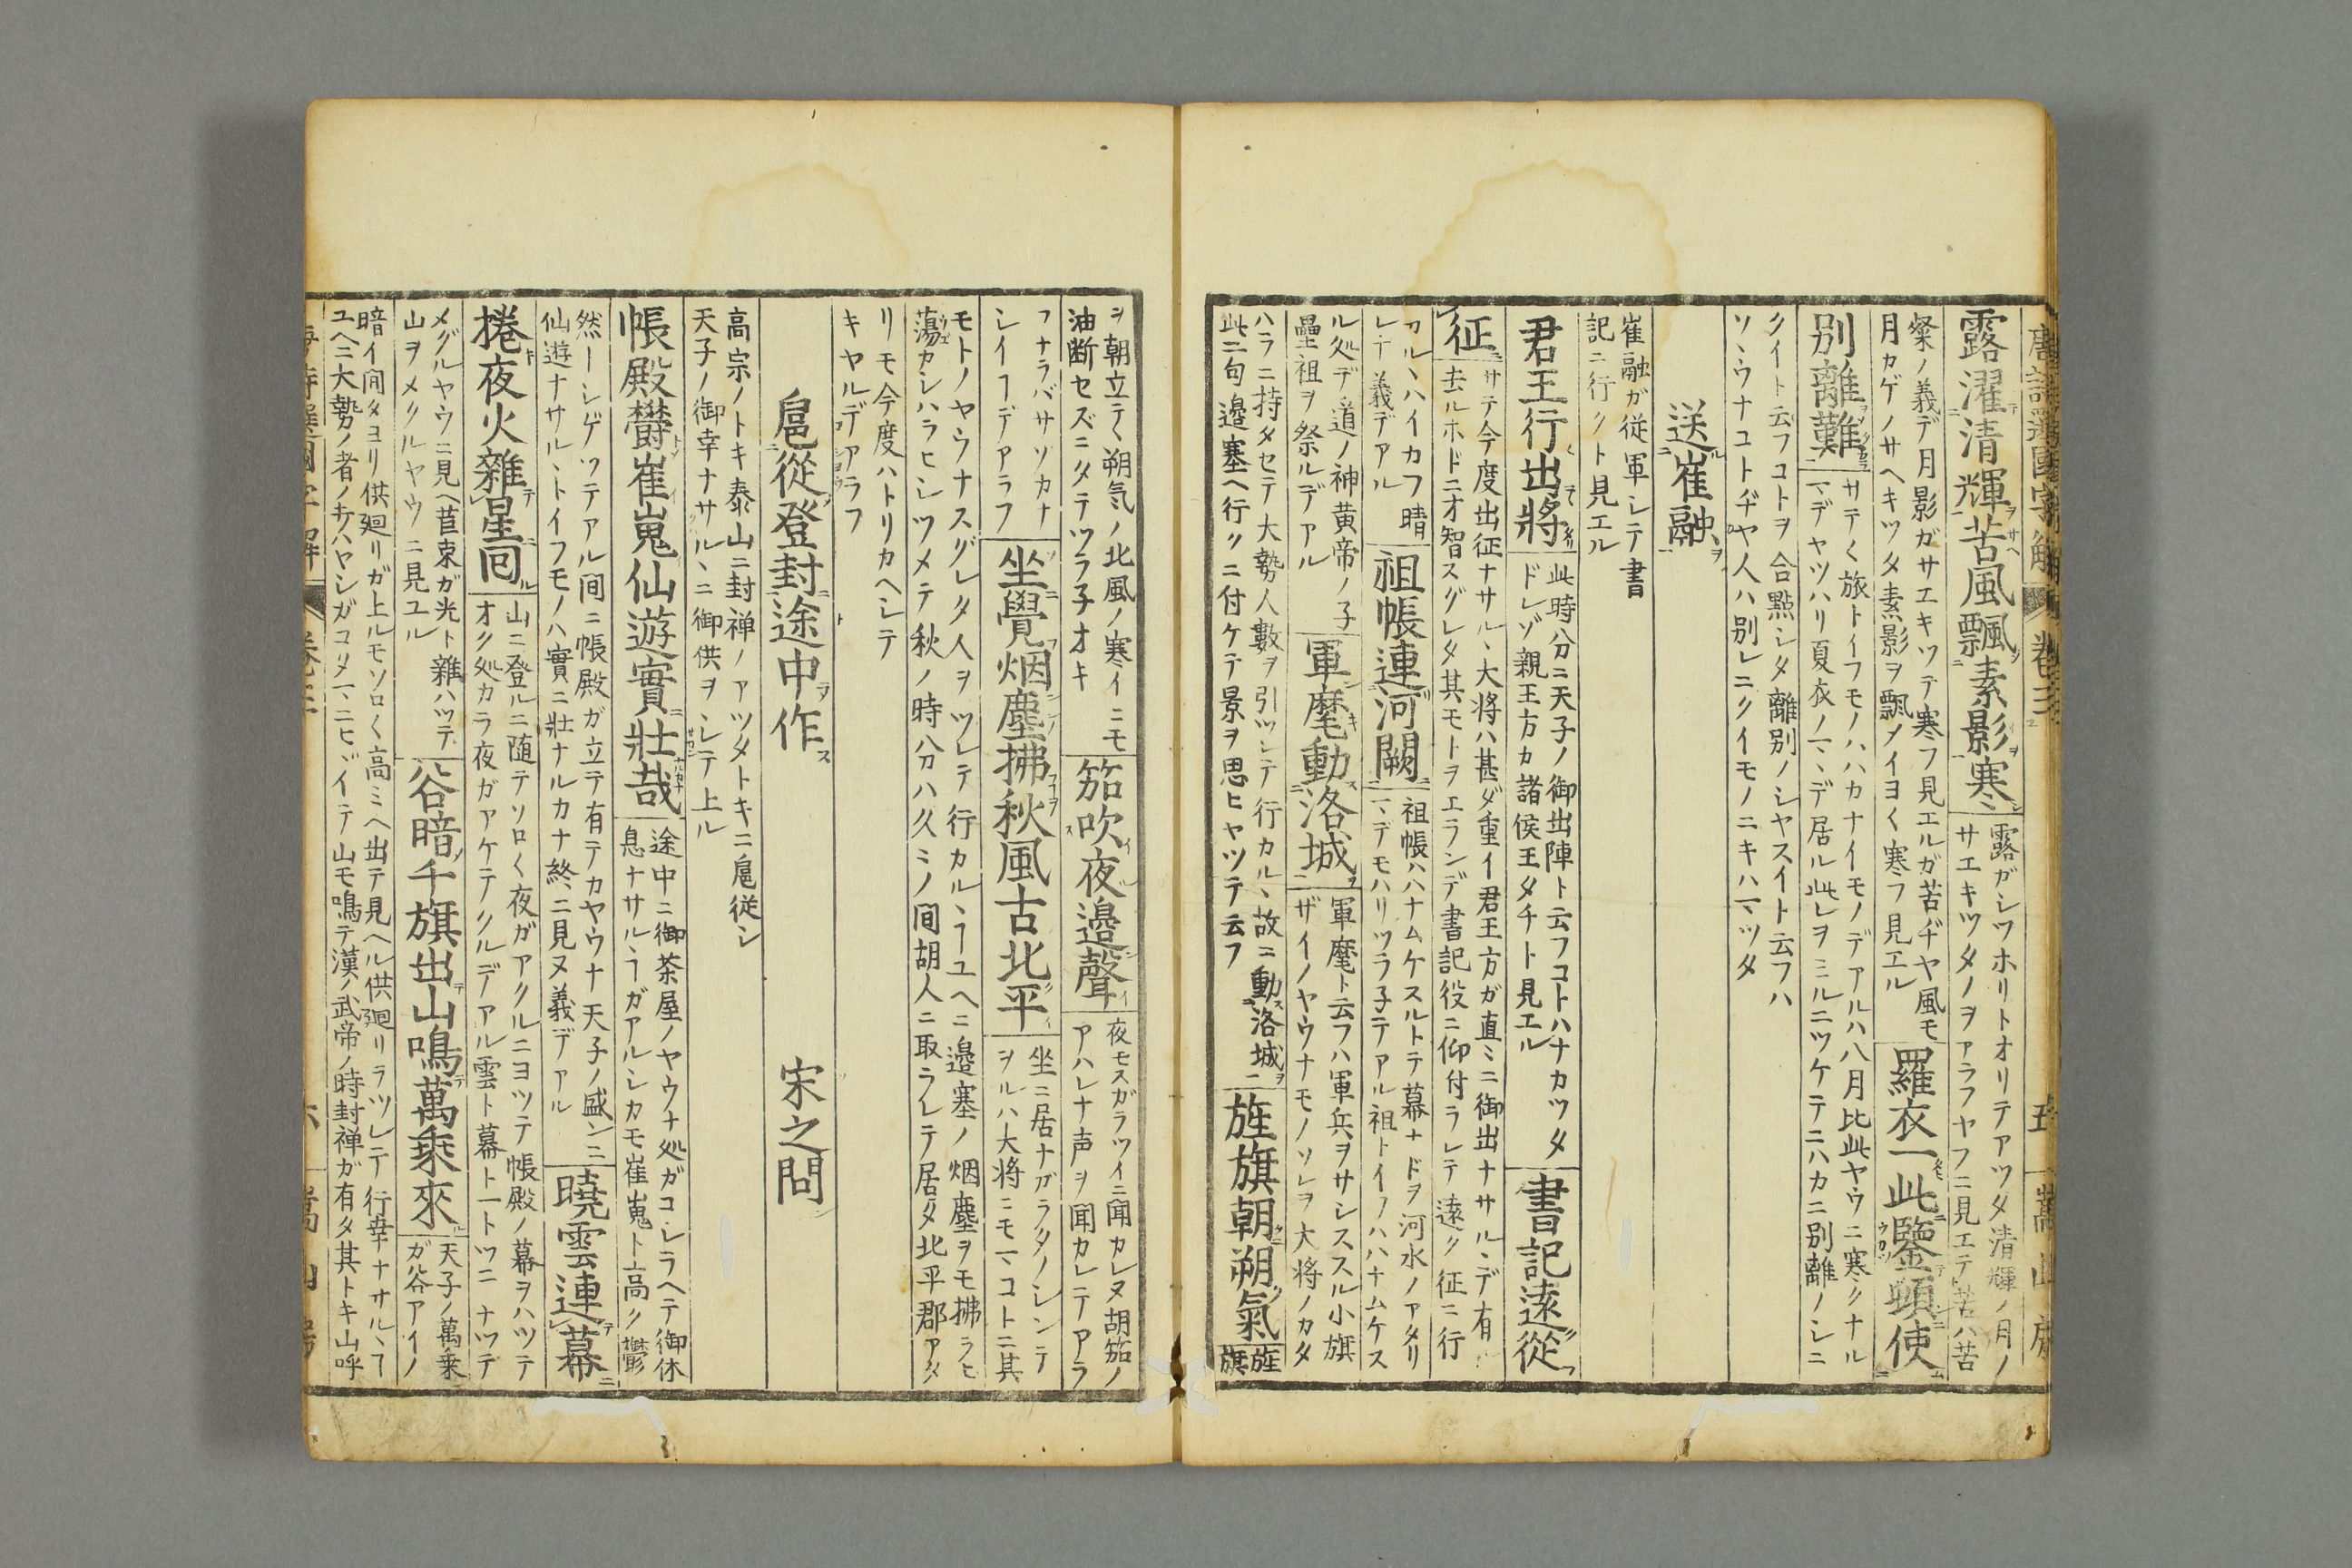 唐詩選國字解 卷三 五 嵩山房
露濯清輝苦風飄素影寒 露ガシツホリトオリテアツタ清輝ノ月ノ
サエキツタノヲアラフヤフニ見エテ苦ハ苦
粲ノ義デ月影ガサエキツテ寒フ見エルガ苦ヂヤ風モ
月カゲノサヘキツタ素影ヲ飄メイヨく寒フ見エル
羅衣一此鑒頓使
別離難 サテく旅トイフモノハハカナイモノデアルハ八月比此ヤウニ寒クナル
マデヤツハリ夏衣ノマヽデ居ル此レヲミルニツケテニハカニ別離ノシニ
クイト云フコトヲ合點シタ離別ノシヤスイト云フハ
ソヽウナコトヂヤ人ハ別レニクイモノニキハマツタ
送崔融
崔融が從軍シテ書
記ニ行クト見エル
君王行出將 此時分ニ天子ノ御出陣ト云フコトハナカツタ
ドレゾ親王方カ諸侯王タチト見エル
書記遠從
征 サテ今度出征ナサルヽ大将ハ甚ダ重イ君王方ガ直ミニ御出ナサルヽデ有
去ルホドニオ智スグレタ其モトヲエランデ書記役ニ仰付ラレテ遠ク征ニ行
カルヽハイカフ晴
レナ義デアル
祖帳連河闕 祖帳ハハナムケスルトテ幕ナドヲ河水ノアタリ
マデモハリツラ子テアル祖トイフハハナムケス
ル処デ道ノ神黄帝ノ子
壘祖ヲ祭ルデアル
軍麾動洛城 軍麾ト云フハ軍兵ヲサシススル小旗
ザイノヤウナモノソレヲ大将ノカタ
ハラニ持タセテ大勢人數ヲ引ツレテ行カルヽ故ニ動洛城
此ニ句邊塞ヘ行クニ付ケテ景ヲ思ヒヤツテ云フ
旌旗朝朔氣 旌
旗
ヲ朝立テく朔気ノ北風ノ寒イニモ
油断セズニタテツラ子オキ
笳吹夜邊聲 夜モスガラツイニ聞カレヌ胡笳ノ
アハレナ声ヲ聞カレテアラ
フナラバサゾカナ
シイフデアラフ
坐覺烟塵拂秋風古北平 坐ニ居ナガラタノシンテ
ヲルハ大将ニモマコトニ其
モトノヤウナスグレタ人ヲツレテ行カルヽユヘニ邊塞ノ烟塵ヲモ拂ラヒ
蕩カシハラヒシツメテ秋ノ時分ハ久ミノ間胡人ニ取ラレテ居タ北平郡アタ
リモ今度ハトリカヘシテ
キヤルデアラフ
扈從登封途中作 宋之問
高宗ノトキ泰山ニ封禅ノアツタトキニ扈従シ
天子ノ御幸ナサルヽニ御供ヲシテ上ル
帳殿欝崔嵬仙遊實壯哉 途中ニ御茶屋ノヤウナ処ガコシラヘテ御休
息ナサルヽフガアルシカモ崔嵬ト高ク鬱
然ーシゲツテアル間ニ帳殿ガ立テ有テカヤウナ天子ノ盛ンニ
仙遊ナサルヽトイフモノハ實ニ壯ナルカナ終ニ見ヌ義デアル
曉雲連幕
捲夜火雜星囘 山ニ登ルニ随テソロく夜ガアクルニヨツテ帳殿ノ幕ヲハツテ
オク処カラ夜ガアケテクルデアル雲ト幕ト一トツニナツデ
メグルヤウニ見ヘ苣束ガ光ト雜ハツテ
山ヲメクルヤウニ見ユル
谷暗千旗出山鳴萬乘來 天子ノ萬乗
ガ谷アイノ
暗イ間タヨリ供廻リガ上ルモソロく高ミヘ出テ見ヘル供廻リラツレテ行幸ナサルヽフ
ユヘニ大勢ノ者ノキハヤシガコタマニヒヾイテ山モ鳴テ漢ノ武帝ノ時封禅ガ有タ其トキ山呼